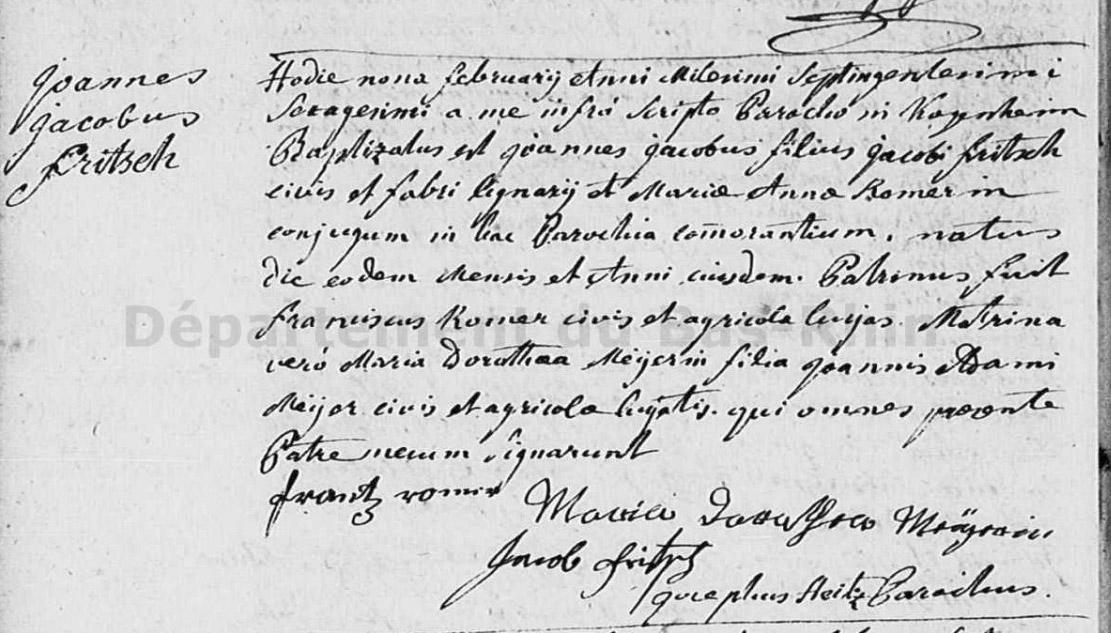 Joannes
Jacobus
Fritsch
Hodie nona februarÿ Anni Milesimi Septingentesimi
Sexagesimi a me infra scripto Parocho in Kogenheim
Baptizatus est Joannes Jacobus filius Jacobi fritsch
civis et fabri lignarÿ et Mariæ Annæ Romer in
conjugum in hac Parochia com̄orantium. natus
die eodem Mensis et Anni eiusdem. Patrinus fuit
franciscus Romer civis et agricola hujas Matrina
verò Maria Dorothæa Meÿerin filia Joannis Adami
Meÿer civis et agricolæ hujatis. qui omnes præsente
Patre mecum Signarunt
frantz romer Maria Dorothea Meÿerin
Jacob fritsch
Heitz Parochus.
Département du Bas-Rhin